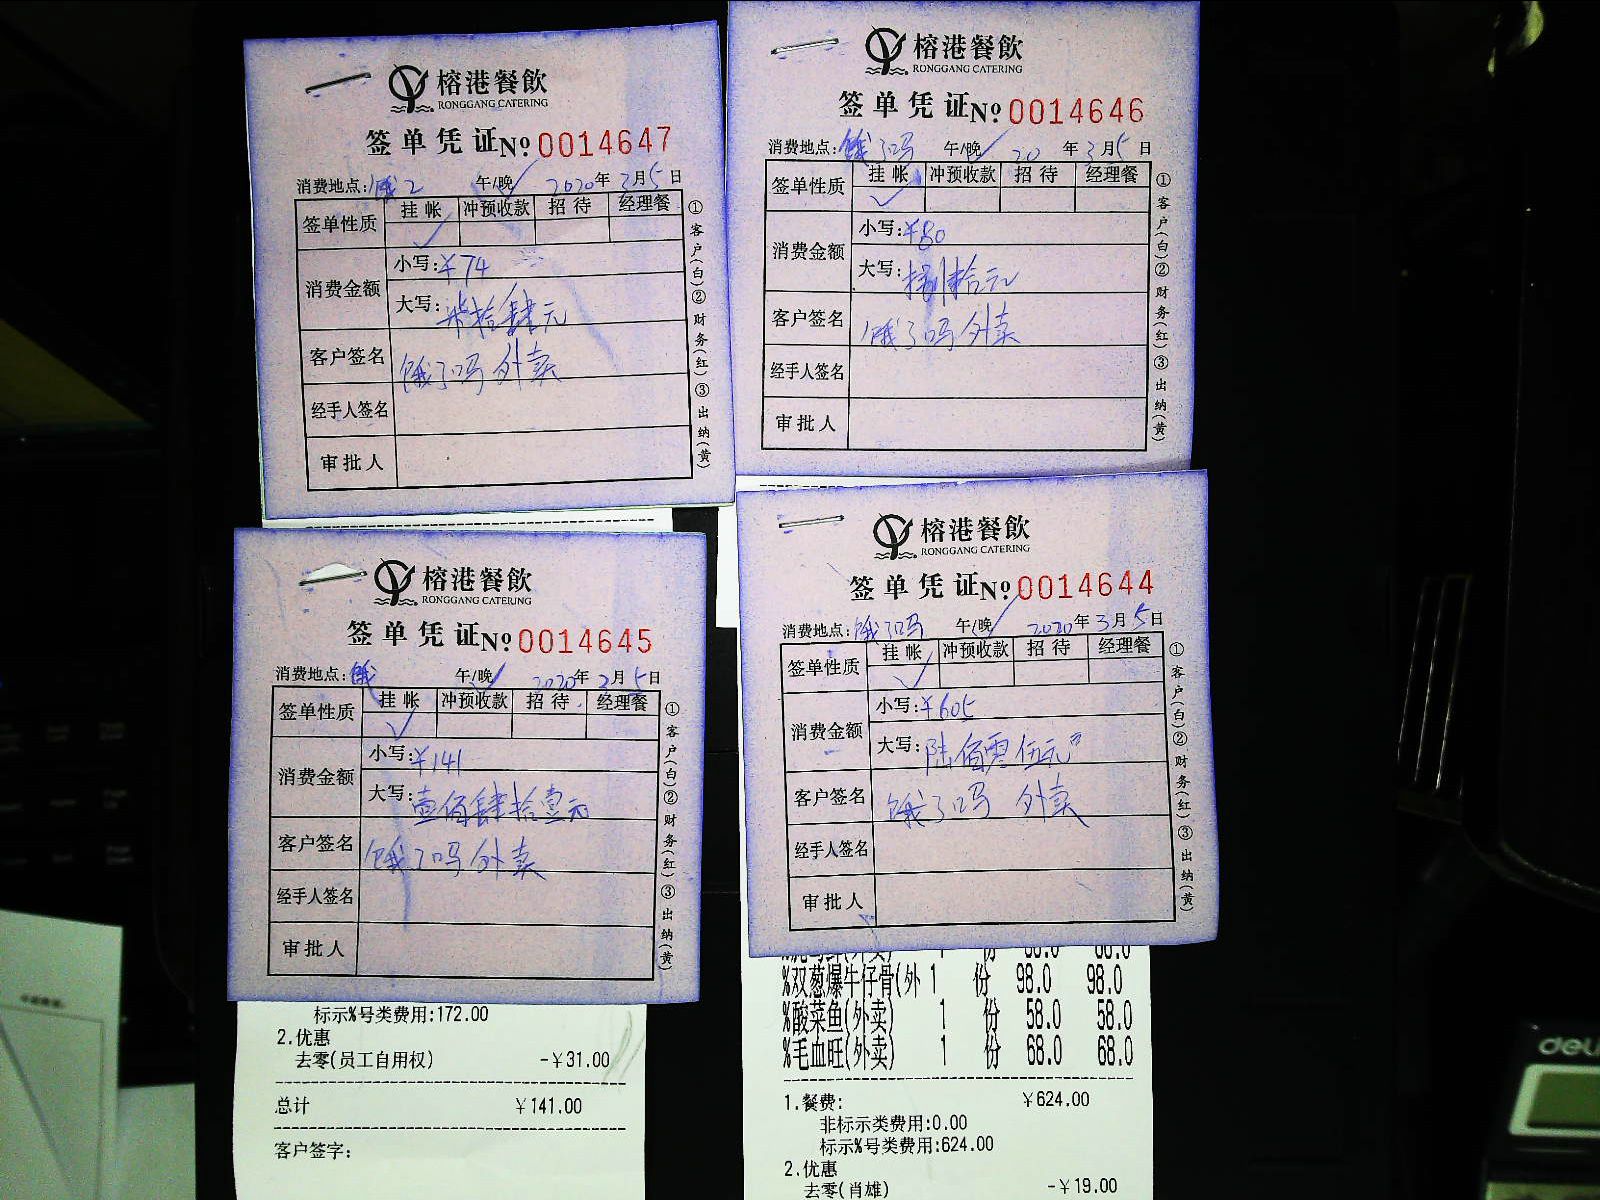 榕港餐飲
RONGGANG CATERING
签单凭证No 0014647
消费地点: 饿2 午/晚 2020年3月5日
签单性质 挂帐 冲预收款 招待 经理餐
消费金额 小写:¥74
大写:柒拾肆元
客户签名 饿了吗 外卖
经手人签名
审批人
①客户(白)②财务(红)③出纳(黄)
榕港餐飲
RONGGANG CATERING
签单凭证No 0014646
消费地点: 饿了吗 午/晚 20 年3月5日
签单性质 挂帐 冲预收款 招待 经理餐
消费金额 小写:¥80
大写:捌拾元
客户签名 饿了吗 外卖
经手人签名
审批人
①客户(白)②财务(红)③出纳(黄)
榕港餐飲
RONGGANG CATERING
签单凭证No 0014645
消费地点: 饿 午/晚 2020年3月5日
签单性质 挂帐 冲预收款 招待 经理餐
消费金额 小写:¥141
大写:壹佰肆拾壹元
客户签名 饿了吗 外卖
经手人签名
审批人
①客户(白)②财务(红)③出纳(黄)
标示%号类费用:172.00
2.优惠
去零(员工自用权) -¥31.00
总计 ¥141.00
客户签字:
榕港餐飲
RONGGANG CATERING
签单凭证No 0014644
消费地点: 饿了吗 午/晚 2020年3月5日
签单性质 挂帐 冲预收款 招待 经理餐
消费金额 小写:¥605
大写:陆佰零伍元
客户签名 饿了吗 外卖
经手人签名
审批人
①客户(白)②财务(红)③出纳(黄)
%双葱爆牛仔骨(外 1 份 98.0 98.0
%酸菜鱼(外卖) 1 份 58.0 58.0
%毛血旺(外卖) 1 份 68.0 68.0
1.餐费: ¥624.00
非标示类费用:0.00
标示%号类费用:624.00
2.优惠
去零(肖雄) -¥19.00
deli